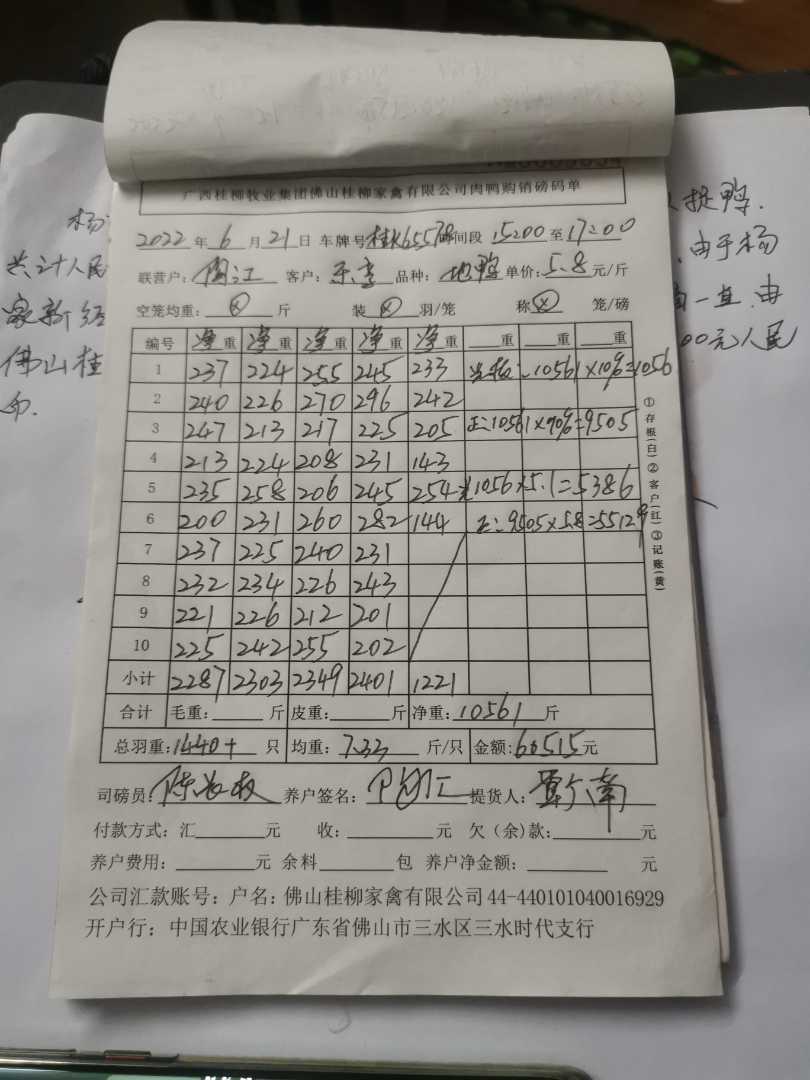 广西桂柳牧业集团佛山桂柳家禽有限公司肉鸭购销磅码单
2022年6月21日 车牌号桂K65578时间段15:00至17:00
联营户: 客户: 品种: 单价:5.8元/斤
空笼均重:⊗斤 装⊗羽/笼 称⊗笼/磅
编号 净重 净重 净重 净重 净重 重 重 重
1 237 224 255 245 233 10561×10%=1056
2 240 226 270 296 242
3 247 213 217 225 205 正:10561×90%=9505
4 213 224 208 231 143
5 235 258 206 245 254 1056×5.1=5386
6 200 231 260 282 144 正:9505×5.8=55129
7 237 225 240 231
8 232 234 226 243
9 221 226 212 201
10 225 242 255 202
小计 2287 2303 2349 2401 1221
合计 毛重: 斤 皮重: 斤 净重:10561斤
总羽重:1440+只 均重:7.33斤/只 金额:60515元
司磅员: 养户签名: 提货人:
付款方式:汇 元 收: 元 欠(余)款: 元
养户费用: 元 余料 包 养户净金额: 元
公司汇款账号:户名:佛山桂柳家禽有限公司44-440101040016929
开户行:中国农业银行广东省佛山市三水区三水时代支行
①存根(白)②客户(红)③记账(黄)
杨
共计人民
家新经
佛山桂
币.
捉鸭.
由于杨
一直,由
00元人民